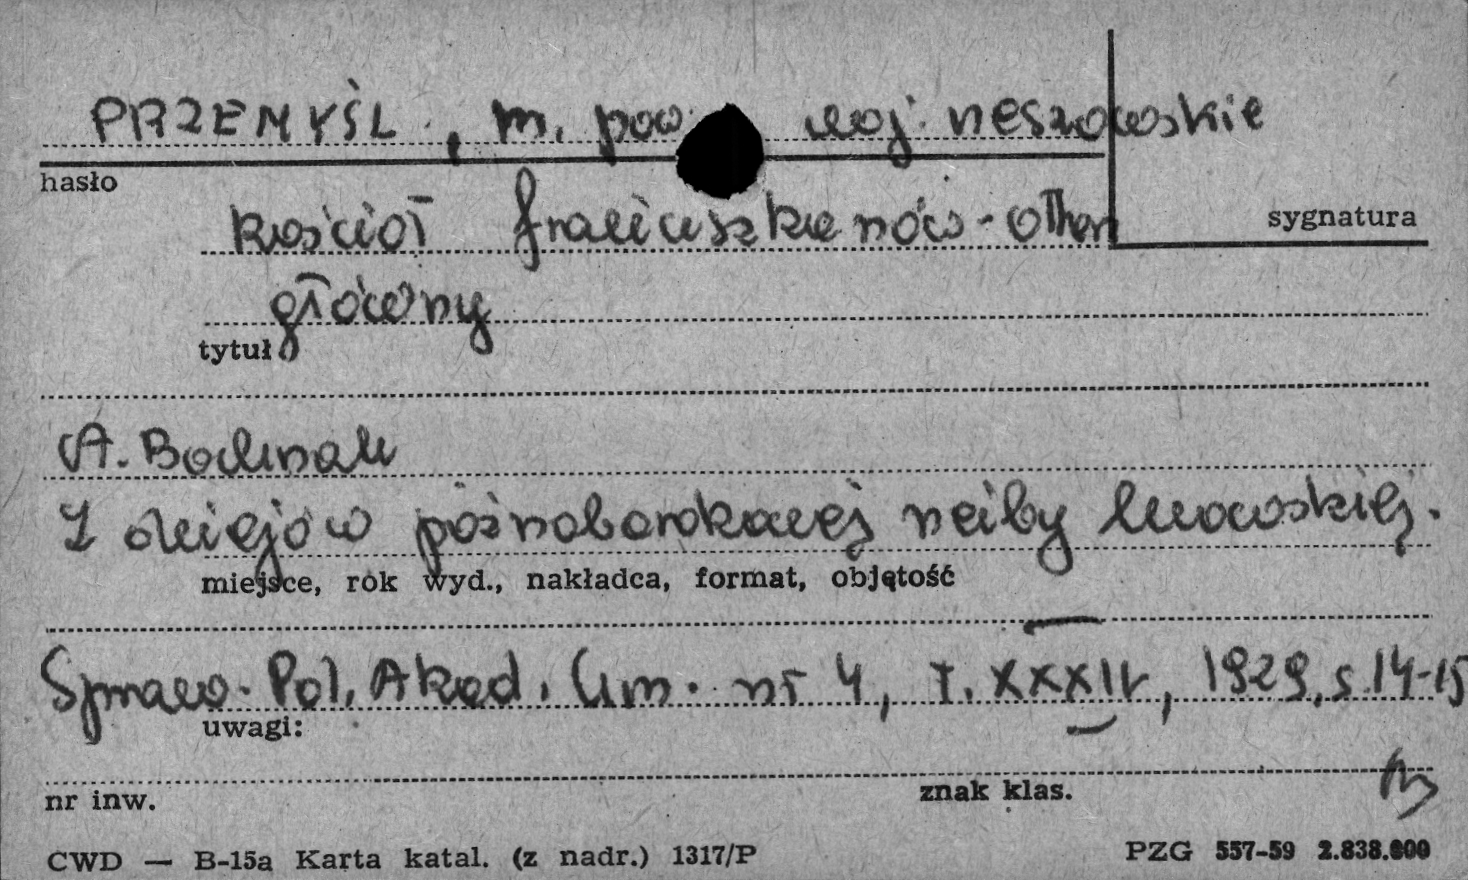 PRZEMYŚL, m. pow. woj. rzeszowskie
hasło
Kościół franciszkanów - ołtarz
sygnatura
główny
tytuł
A. Bochnak
Z dziejów późnobarokowej rzeźby lwowskiej.
miejsce, rok wyd., nakładca, format, objętość
Spraw. Pol. Akad. Um. nr 4, t. XXXIV, 1929, s. 14-15
uwagi:
nr inw.
znak klas.
CWD — B-15a Karta katal. (z nadr.) 1317/P
PZG 557-59 2.838.000